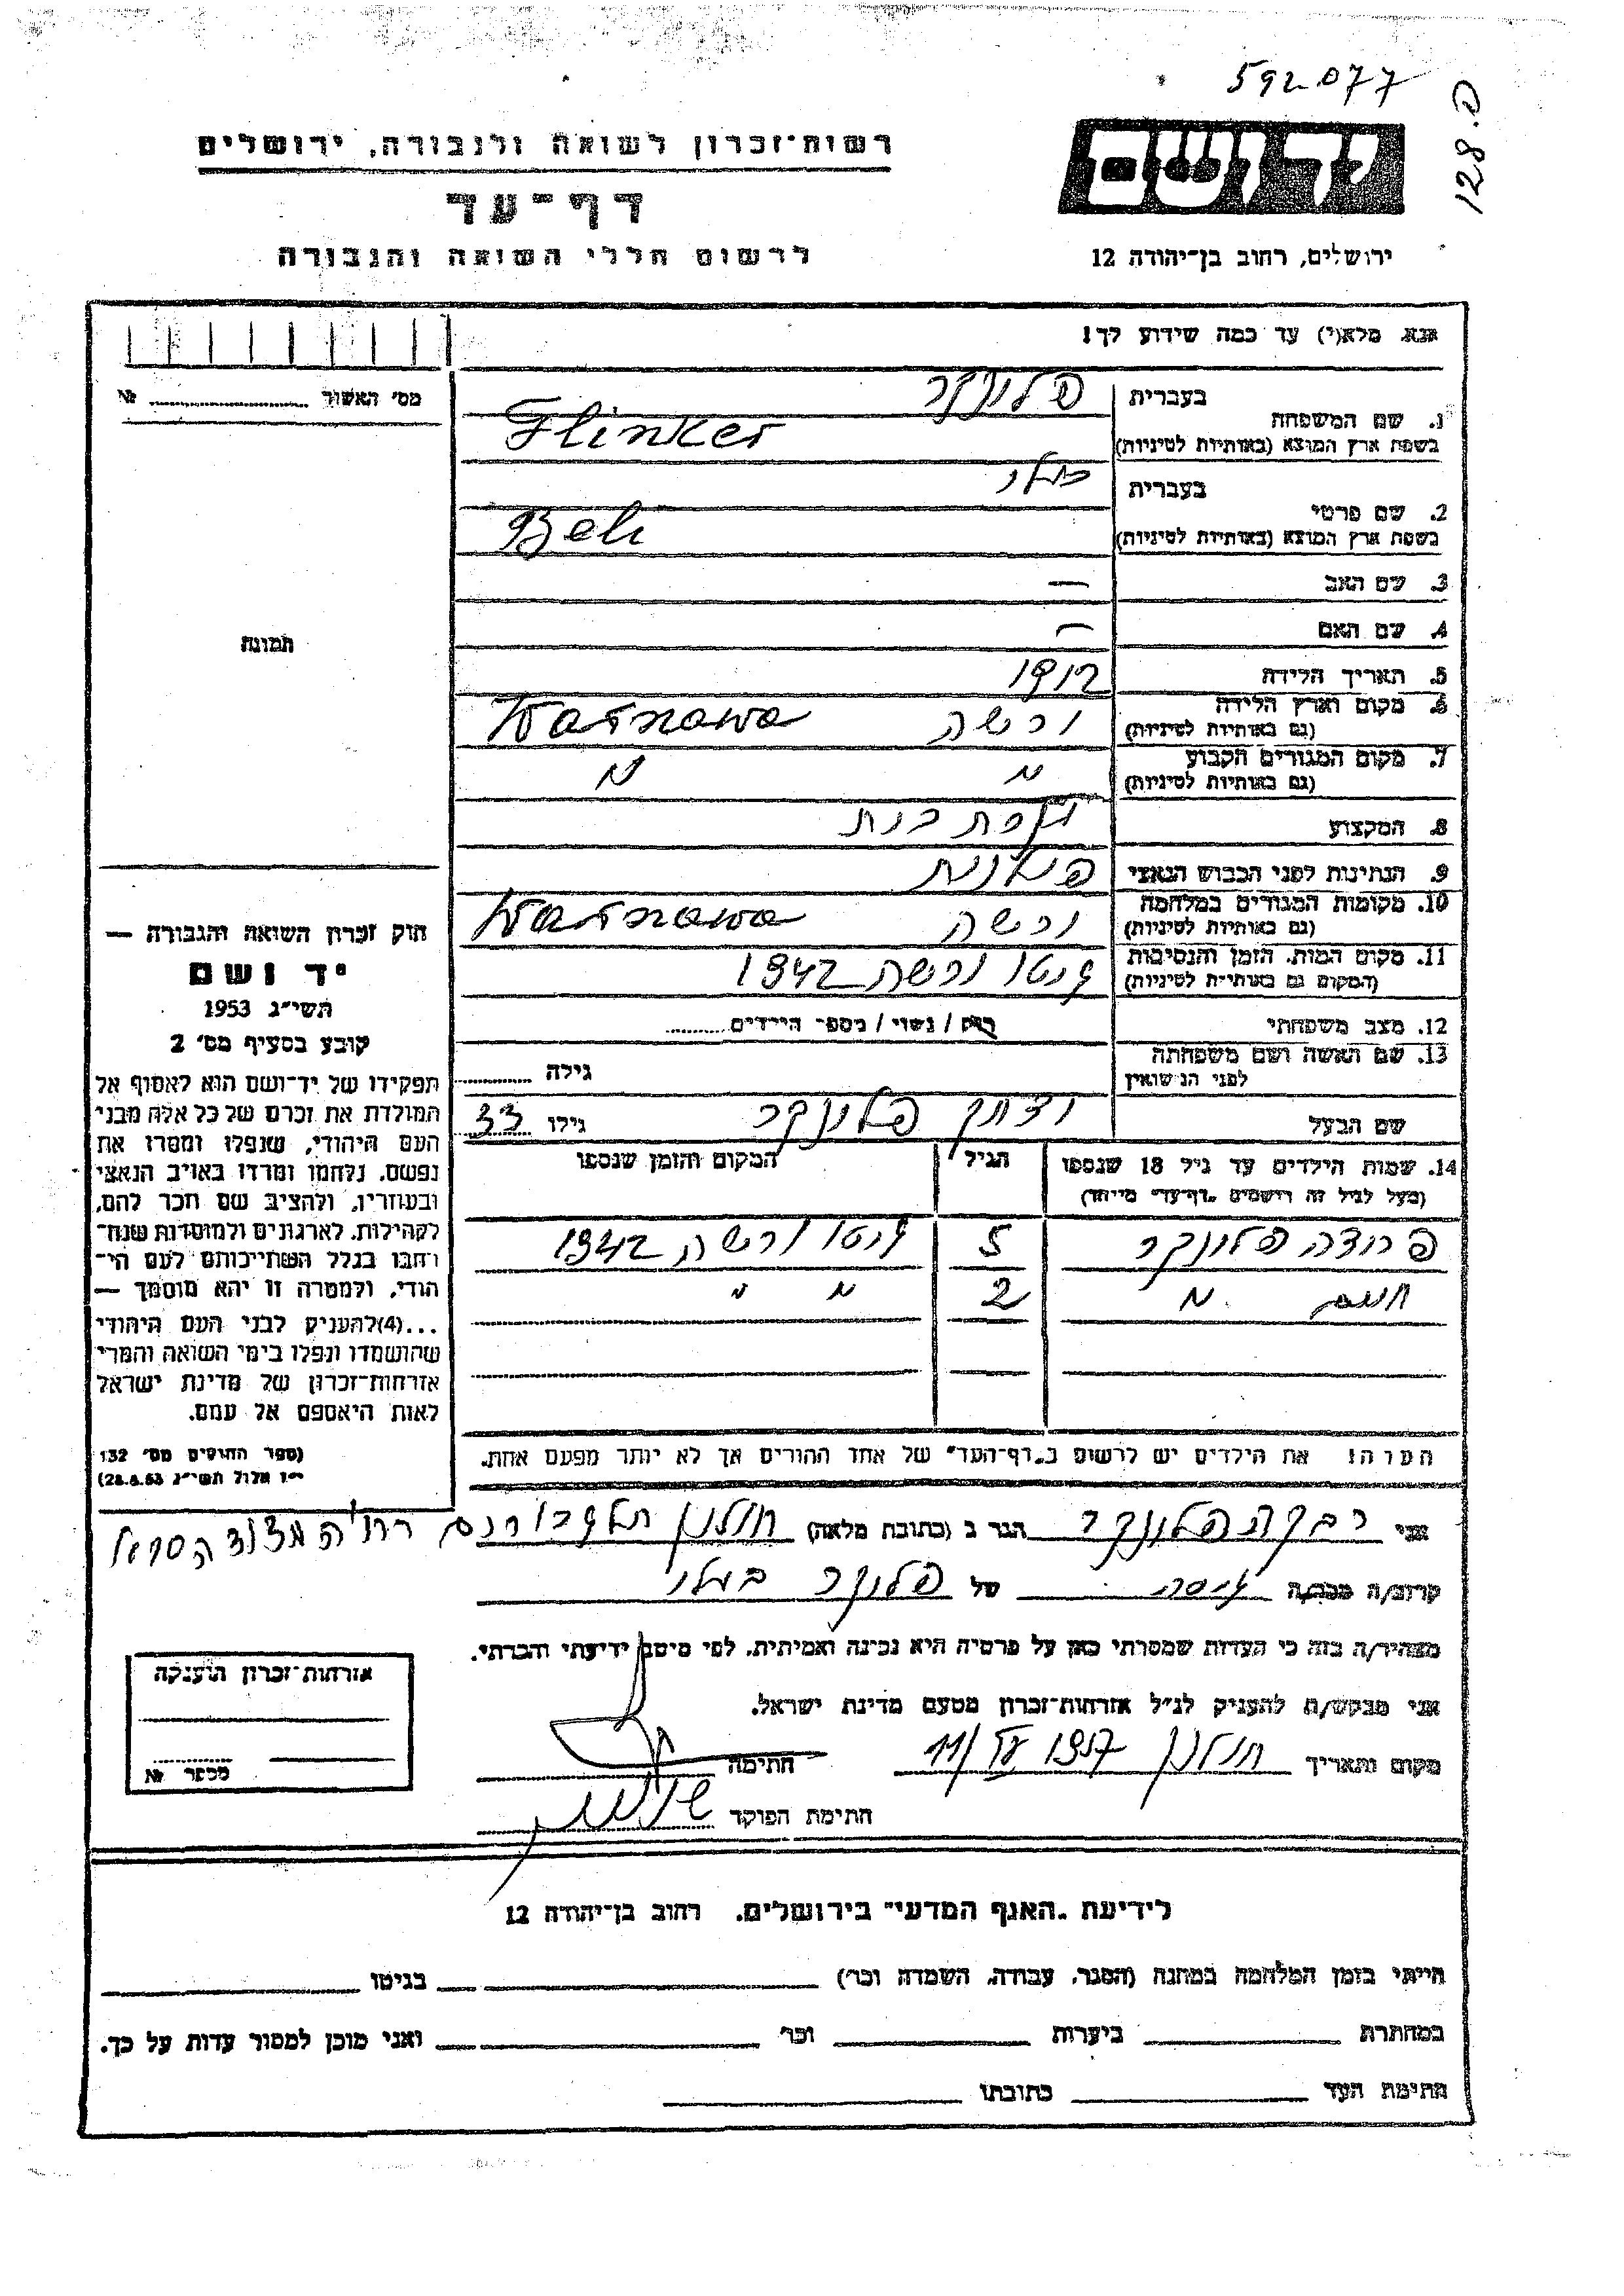 592077
128.פ
יד ושם
רשות־זכרון לשואה ולגבורה, ירושלים
דף־עד
לרשום חללי השואה והגבורה
ירושלים, רחוב בן־יהודה 12
אנא מלא(י) עד כמה שידוע לך!
מס' האשור № 
1. שם המשפחה בעברית פלינקר
בשפת ארץ המוצא (באותיות לטיניות) Flinker
2. שם פרטי בעברית
בשפת ארץ המוצא (באותיות לטיניות) Beli
3. שם האב —
4. שם האם —
5. תאריך הלידה 1912
6. מקום וארץ הלידה (גם באותיות לטיניות) ורשה
7. מקום המגורים הקבוע (גם באותיות לטיניות) " "
8. המקצוע עקרת בית
9. הנתינות לפני הכבוש הנאצי פולנית
10. מקומות המגורים במלחמה (גם באותיות לטיניות) ורשה
11. מקום המות, הזמן והנסיבות (המקום גם באותיות לטיניות) גיטו ורשה 1942
12. מצב משפחתי רוק / נשוי / מספר הילדים
13. שם האשה ושם משפחתה לפני הנישואין גילה
שם הבעל יצחק פלינקר גילו 33
14. שמות הילדים עד גיל 18 שנספו הגיל המקום והזמן שנספו
(מעל לגיל זה רושמים "דף־עד" מיוחד)
פלינקר 5 גיטו ורשה 1942
" 2 " "
הערה! את הילדים יש לרשום ב"דף־העד" של אחד ההורים אך לא יותר מפעם אחת.
תמונה
חוק זכרון השואה והגבורה —
יד ושם
תשי״ג 1953
קובע בסעיף מס' 2
תפקידו של יד־ושם הוא לאסוף אל
המולדת את זכרם של כל אלה מבני
העם היהודי, שנפלו ומסרו את
נפשם, נלחמו ומרדו באויב הנאצי
ובעוזריו, ולהציב שם וזכר להם,
לקהילות, לארגונים ולמוסדות שנח־
רבו בגלל השתייכותם לעם הי־
הודי, ולמטרה זו יהא מוסמך —
...(4)להעניק לבני העם היהודי
שהושמדו ונפלו בימי השואה והמרי
אזרחות־זכרון של מדינת ישראל
לאות היאספם אל עמם.
(ספר החוקים מס' 132
י״ז אלול תשי״ג 28.8.53)
אני רבקה פלינקר הגר ב (כתובת מלאה) חולון
קרוב/ה מכר/ה גיסה של פלינקר
מצהיר/ה בזה כי העדות שמסרתי כאן על פרטיה היא נכונה ואמיתית, לפי מיטב ידיעתי והכרתי.
אני מבקש/ת להעניק לנ״ל אזרחות־זכרון מטעם מדינת ישראל.
מקום ותאריך חולון חתימה
חתימת הפוקד
אזרחות־זכרון הוענקה
מספר №
לידיעת "האגף המדעי" בירושלים, רחוב בן־יהודה 12
הייתי בזמן המלחמה במחנה (הסגר, עבודה, השמדה וכו') בגיטו
במחתרת ביערות וכו' ואני מוכן למסור עדות על כך.
חתימת העד כתובתו